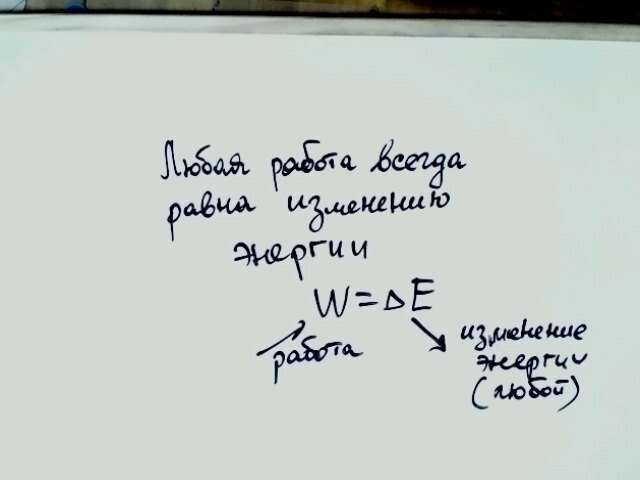 Любая работа всегда
равна изменению
энергии
W = ΔE
работа
изменение
энергии
(любой)